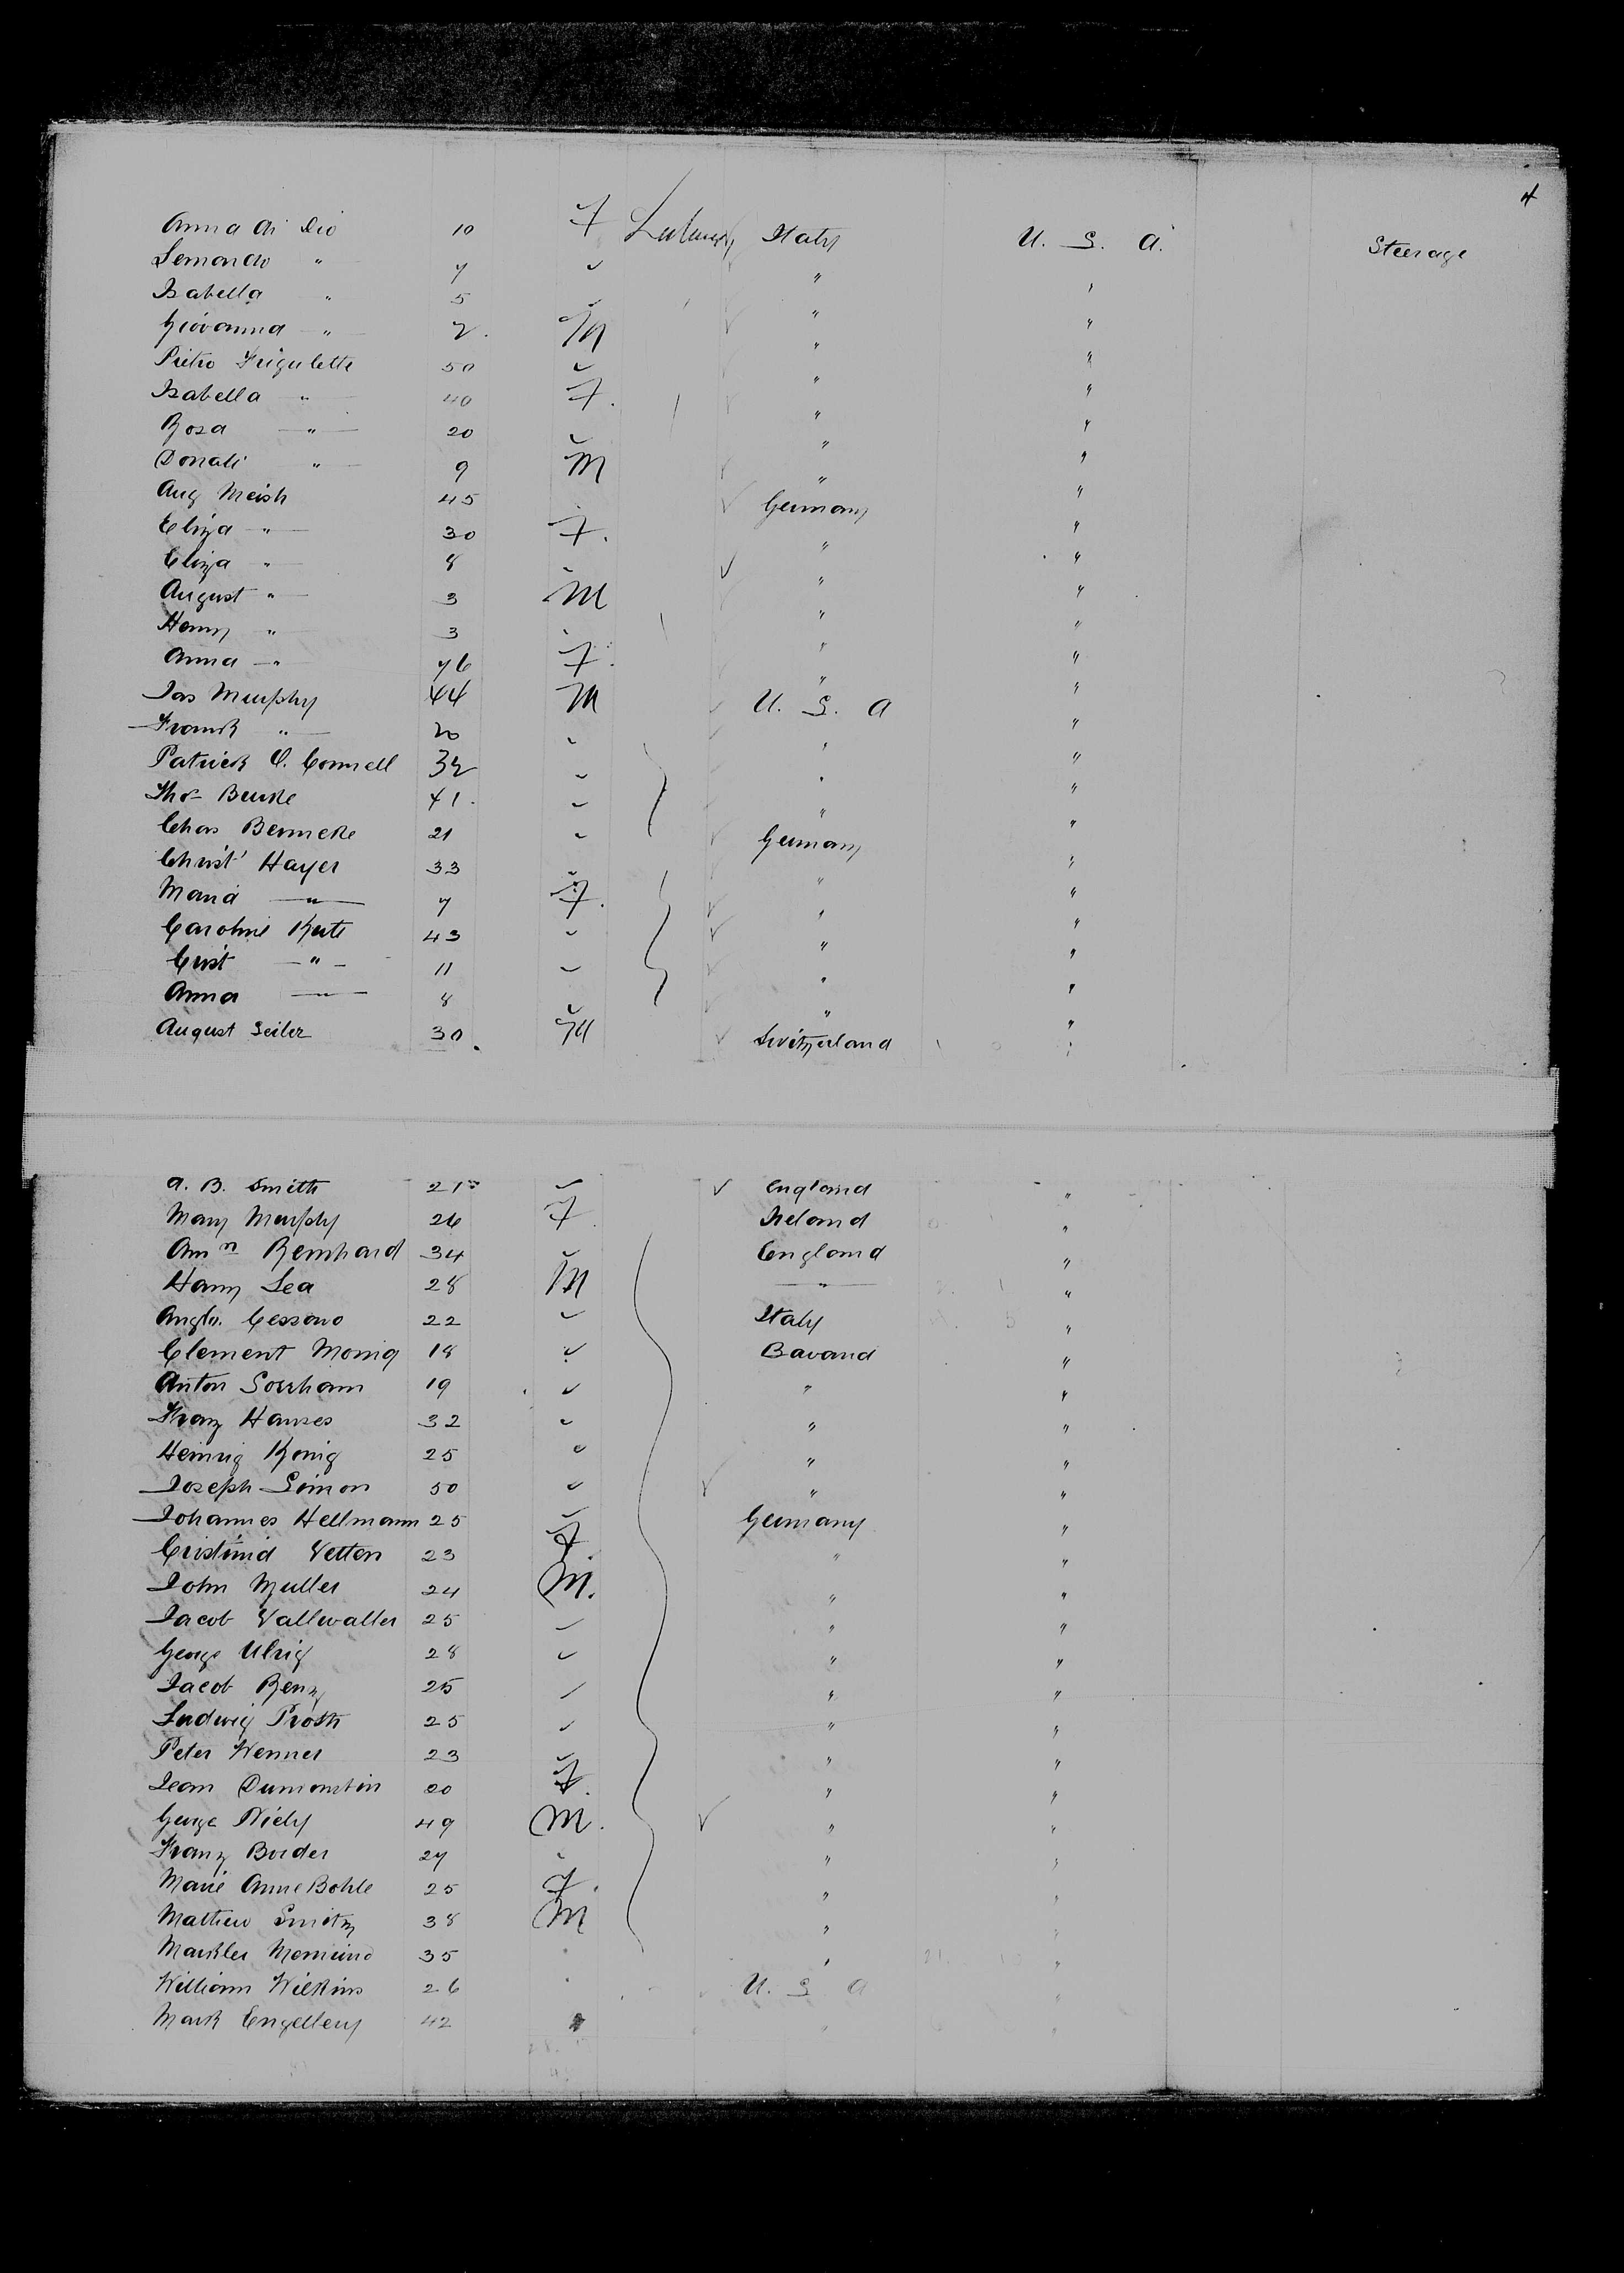 4
Anna di Dio 10 F Laborer, Italy U. S. A. Steerage
Lenardo " 7 " " "
Isabella " 5 " " "
Giovanna " 2. M " "
Pietro Frigulette 50 " " "
Isabella " 40 F. " "
Rosa " 20 " " "
Donati " 9 M " "
Aug Meish 45 " Germany "
Eliza " 30 F. " "
Eliza " 8 " " "
August " 3 M " "
Henry " 3 " " "
Anna " 76 F. " "
Jas Murphy 44 M U. S. A "
Frank " 20 " " "
Patrick O. Connell 32 " " "
Thos Burke 41. " " "
Chas Benneke 21 " Germany "
Christ' Hayer 33 " " "
Maria " 7 F. " "
Caroline Kute 43 " " "
Crist " 11 " " "
Anna " 8 " " "
August Seiler 30. M Switzerland "
A. B. Smith 21 " England "
Mary Murphy 26 F. Ireland "
Amn Reinhard 34 " England "
Harry Lea 28 M " "
Anglo. Cessono 22 " Italy "
Clement Monig 18 " Bavaria "
Anton 19 " " "
Franz Hanses 32 " " "
Heinrig Konig 25 " " "
Joseph Simon 50 " " "
Johannes Hellmann 25 " Germany "
Cristinia Vetten 23 F " "
John Muller 24 M. " "
Jacob Vallwaller 25 " " "
George Ulrig 28 " " "
Jacob Renz 25 " " "
Ludwig Prosth 25 " " "
Peter Wenner 23 " " "
Jean Dumontin 20 F. " "
George Niely 49 M. " "
Franz Border 27 " " "
Marie Anne Bohle 25 F. " "
Mathew Smitz 38 M " "
Markler 35 " " "
William Wilkins 26 " U. S. A "
Mark Engellery 42 " " "